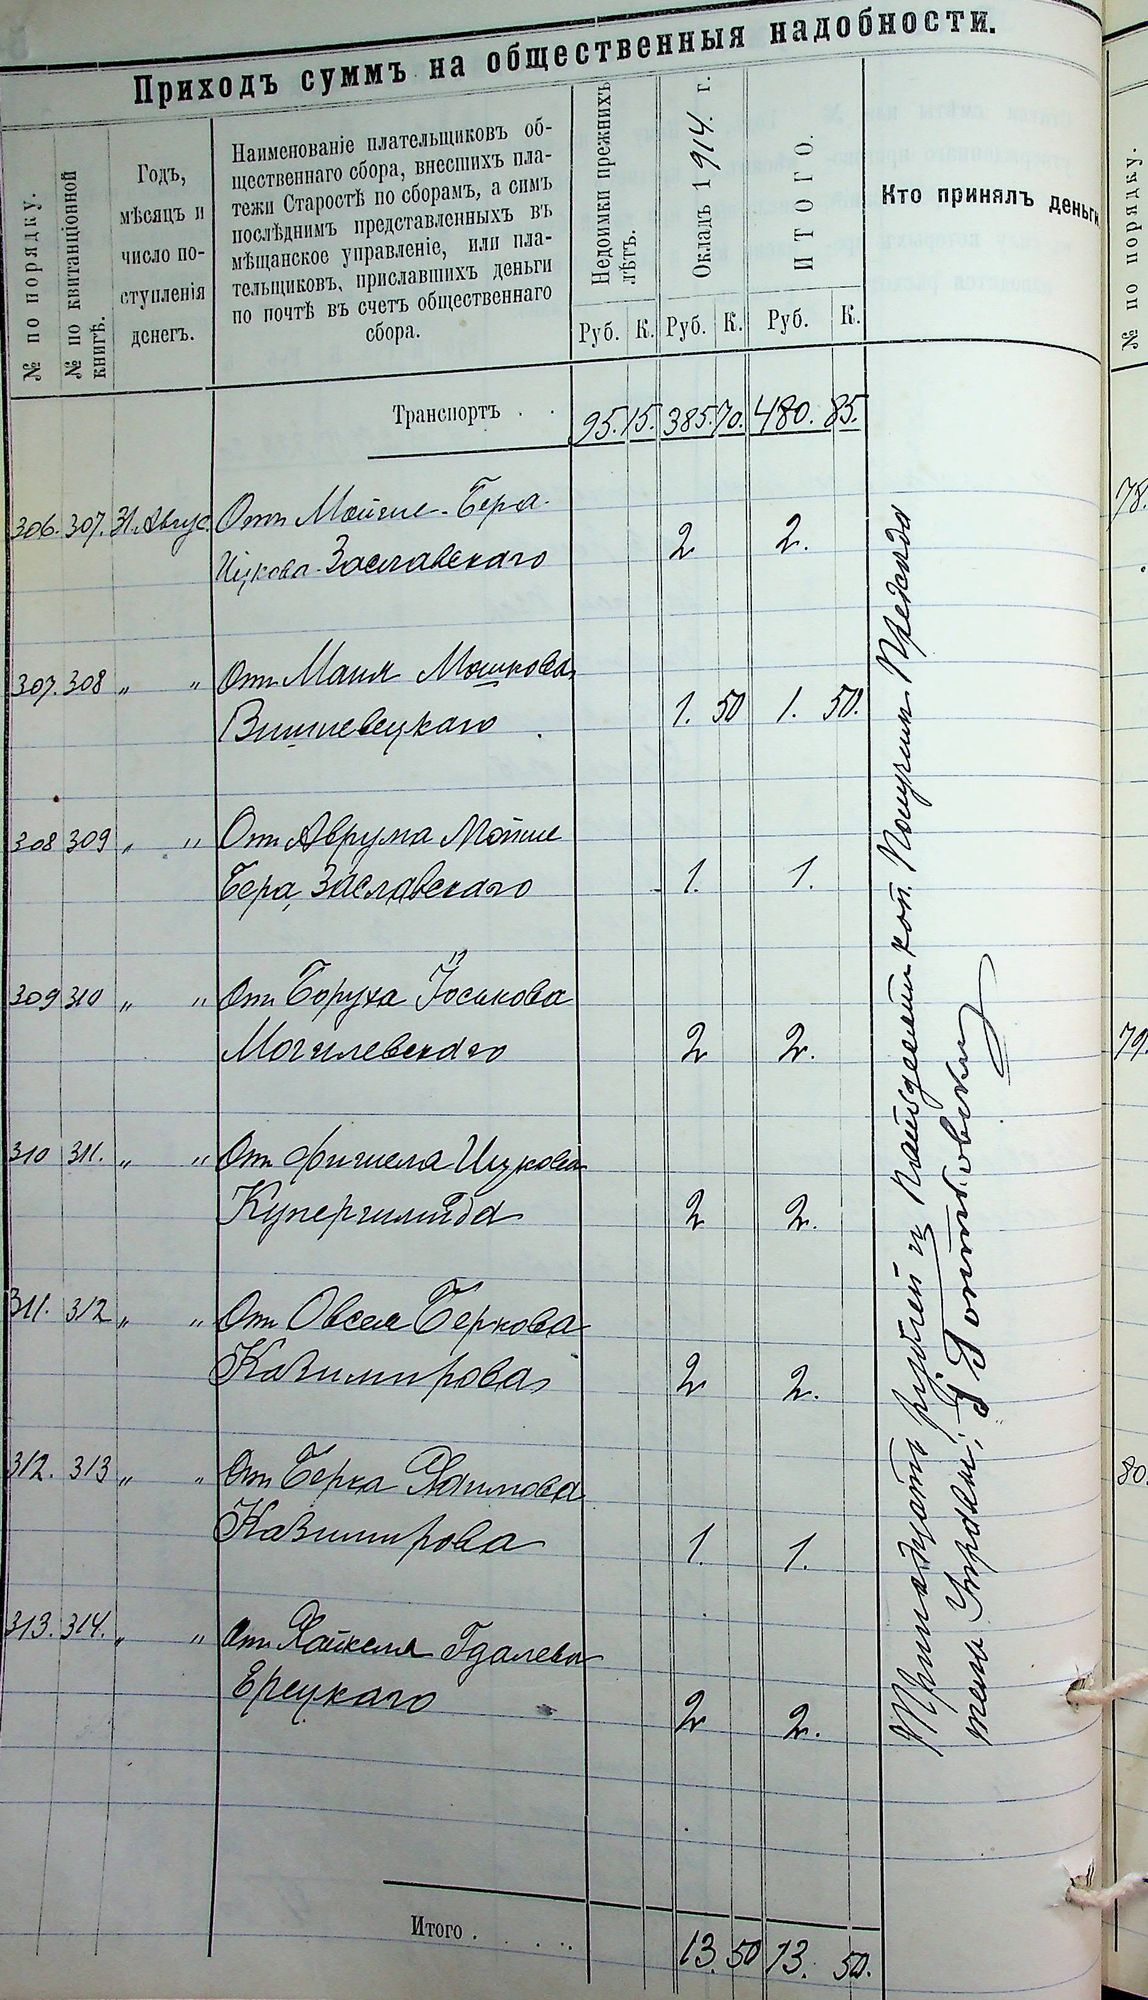 Приходъ суммъ на общественныя надобности.
№ по порядку.
№ по квитанціонной
книгѣ.
Годъ,
мѣсяцъ и
число по-
ступленія
денегъ.
Наименованіе плательщиковъ об-
щественнаго сбора, внесшихъ пла-
тежи Старостѣ по сборамъ, а симъ
послѣднимъ представленныхъ въ
мѣщанское управленіе, или пла-
тельщиковъ, приславшихъ деньги
по почтѣ въ счетъ общественнаго
сбора.
Недоимки прежнихъ
лѣтъ.
Окладъ 1914. г.
ИТОГО.
Кто принялъ деньги
Руб. К. Руб. К. Руб. К.
Транспортъ . . 95. 15. 385. 70. 480. 85.
306. 307. 31. Авгус. Отъ Мойше-Бера
Ицкова Заславскаго 2 2.
307. 308 „ „ Отъ Маня Мошкова
Вишневецкаго 1. 50 1. 50.
308 309 „ „ Отъ Аврума Мойше
Бера Заславскаго 1. 1.
309 310 „ „ Отъ Боруха Іоськова
Могилевскаго 2 2.
310 311. „ „ Отъ Фишеля Ицкова
Купершмида 2 2.
311. 312 „ „ Отъ Овсея Беркова
Казимирова 2 2.
312. 313 „ „ Отъ Берка Хаимова
Казимирова 1. 1.
313. 314. „ „ Отъ Хайкеля Гдалева
Ерецкаго 2 2.
Тринадцать рублей и пятьдесятъ коп. Получилъ Предсѣда
тель Управы:
Итого . . . . . 13. 50 13. 50.
№ по порядку.
78.
79.
80.